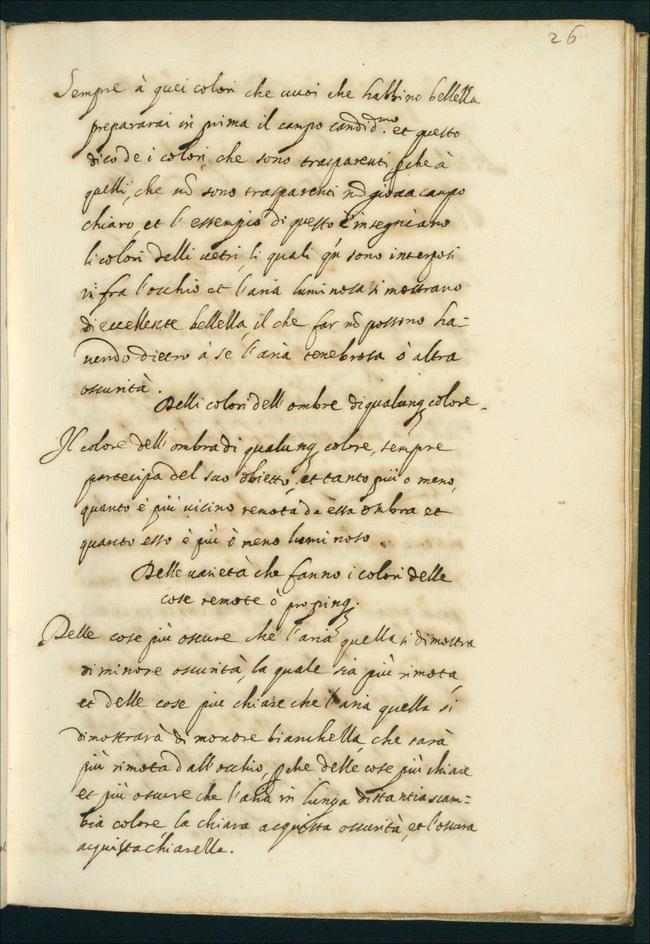 26
Sempre à quei colori che vuoi che habbino bellezza
prepararai in prima il campo candid.mo et questo
dico de i colori, che sono trasparenti, pche à
quelli, che nõ sono trasparenti nõ giova campo
chiaro, et l'essempio di questo c'insegnano
li colori delli vetri li quali qñ sono interposti
fra l'occhio et l'aria luminosa si mostrano
di eccellente bellezza, il che far nõ possono ha=
vendo dietro à se l'aria tenebrosa ò altra
oscurità.
Delli colori dell'ombre di qualunq colore.
Il colore dell'ombra di qualunq colore, sempre
partecipa del suo obietto, et tanto più o meno,
quanto è più vicino remota da essa ombra et
quanto esso è più ò meno luminoso.
Delle varietà che fanno i colori delle
cose remote ò proping.
Delle cose più oscure che l'aria quella si dimostra
di minore oscurità, la quale sia più rimota,
et delle cose più chiare che l'aria quella si
dimostrarà di monore bianchezza, che sarà
più rimota dall'occhio, pche delle cose più chiare
et più oscure che l'aria in lunga distantia scam=
bia colore, la chiara acquista oscurità, et l'oscura
acquista chiarezza.